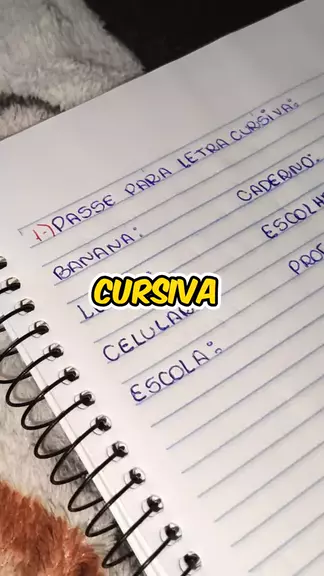 1-) PASSE PARA LETRA CURSIVA:
BANANA: CADERNO:
CELULAR
ESCOLA:
CURSIVA